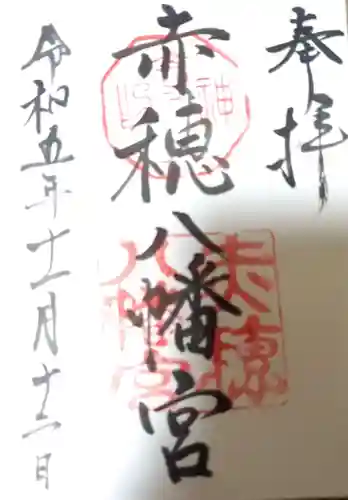 奉拝
赤穂八幡宮
赤穂八幡宮
令和五年十一月十二日